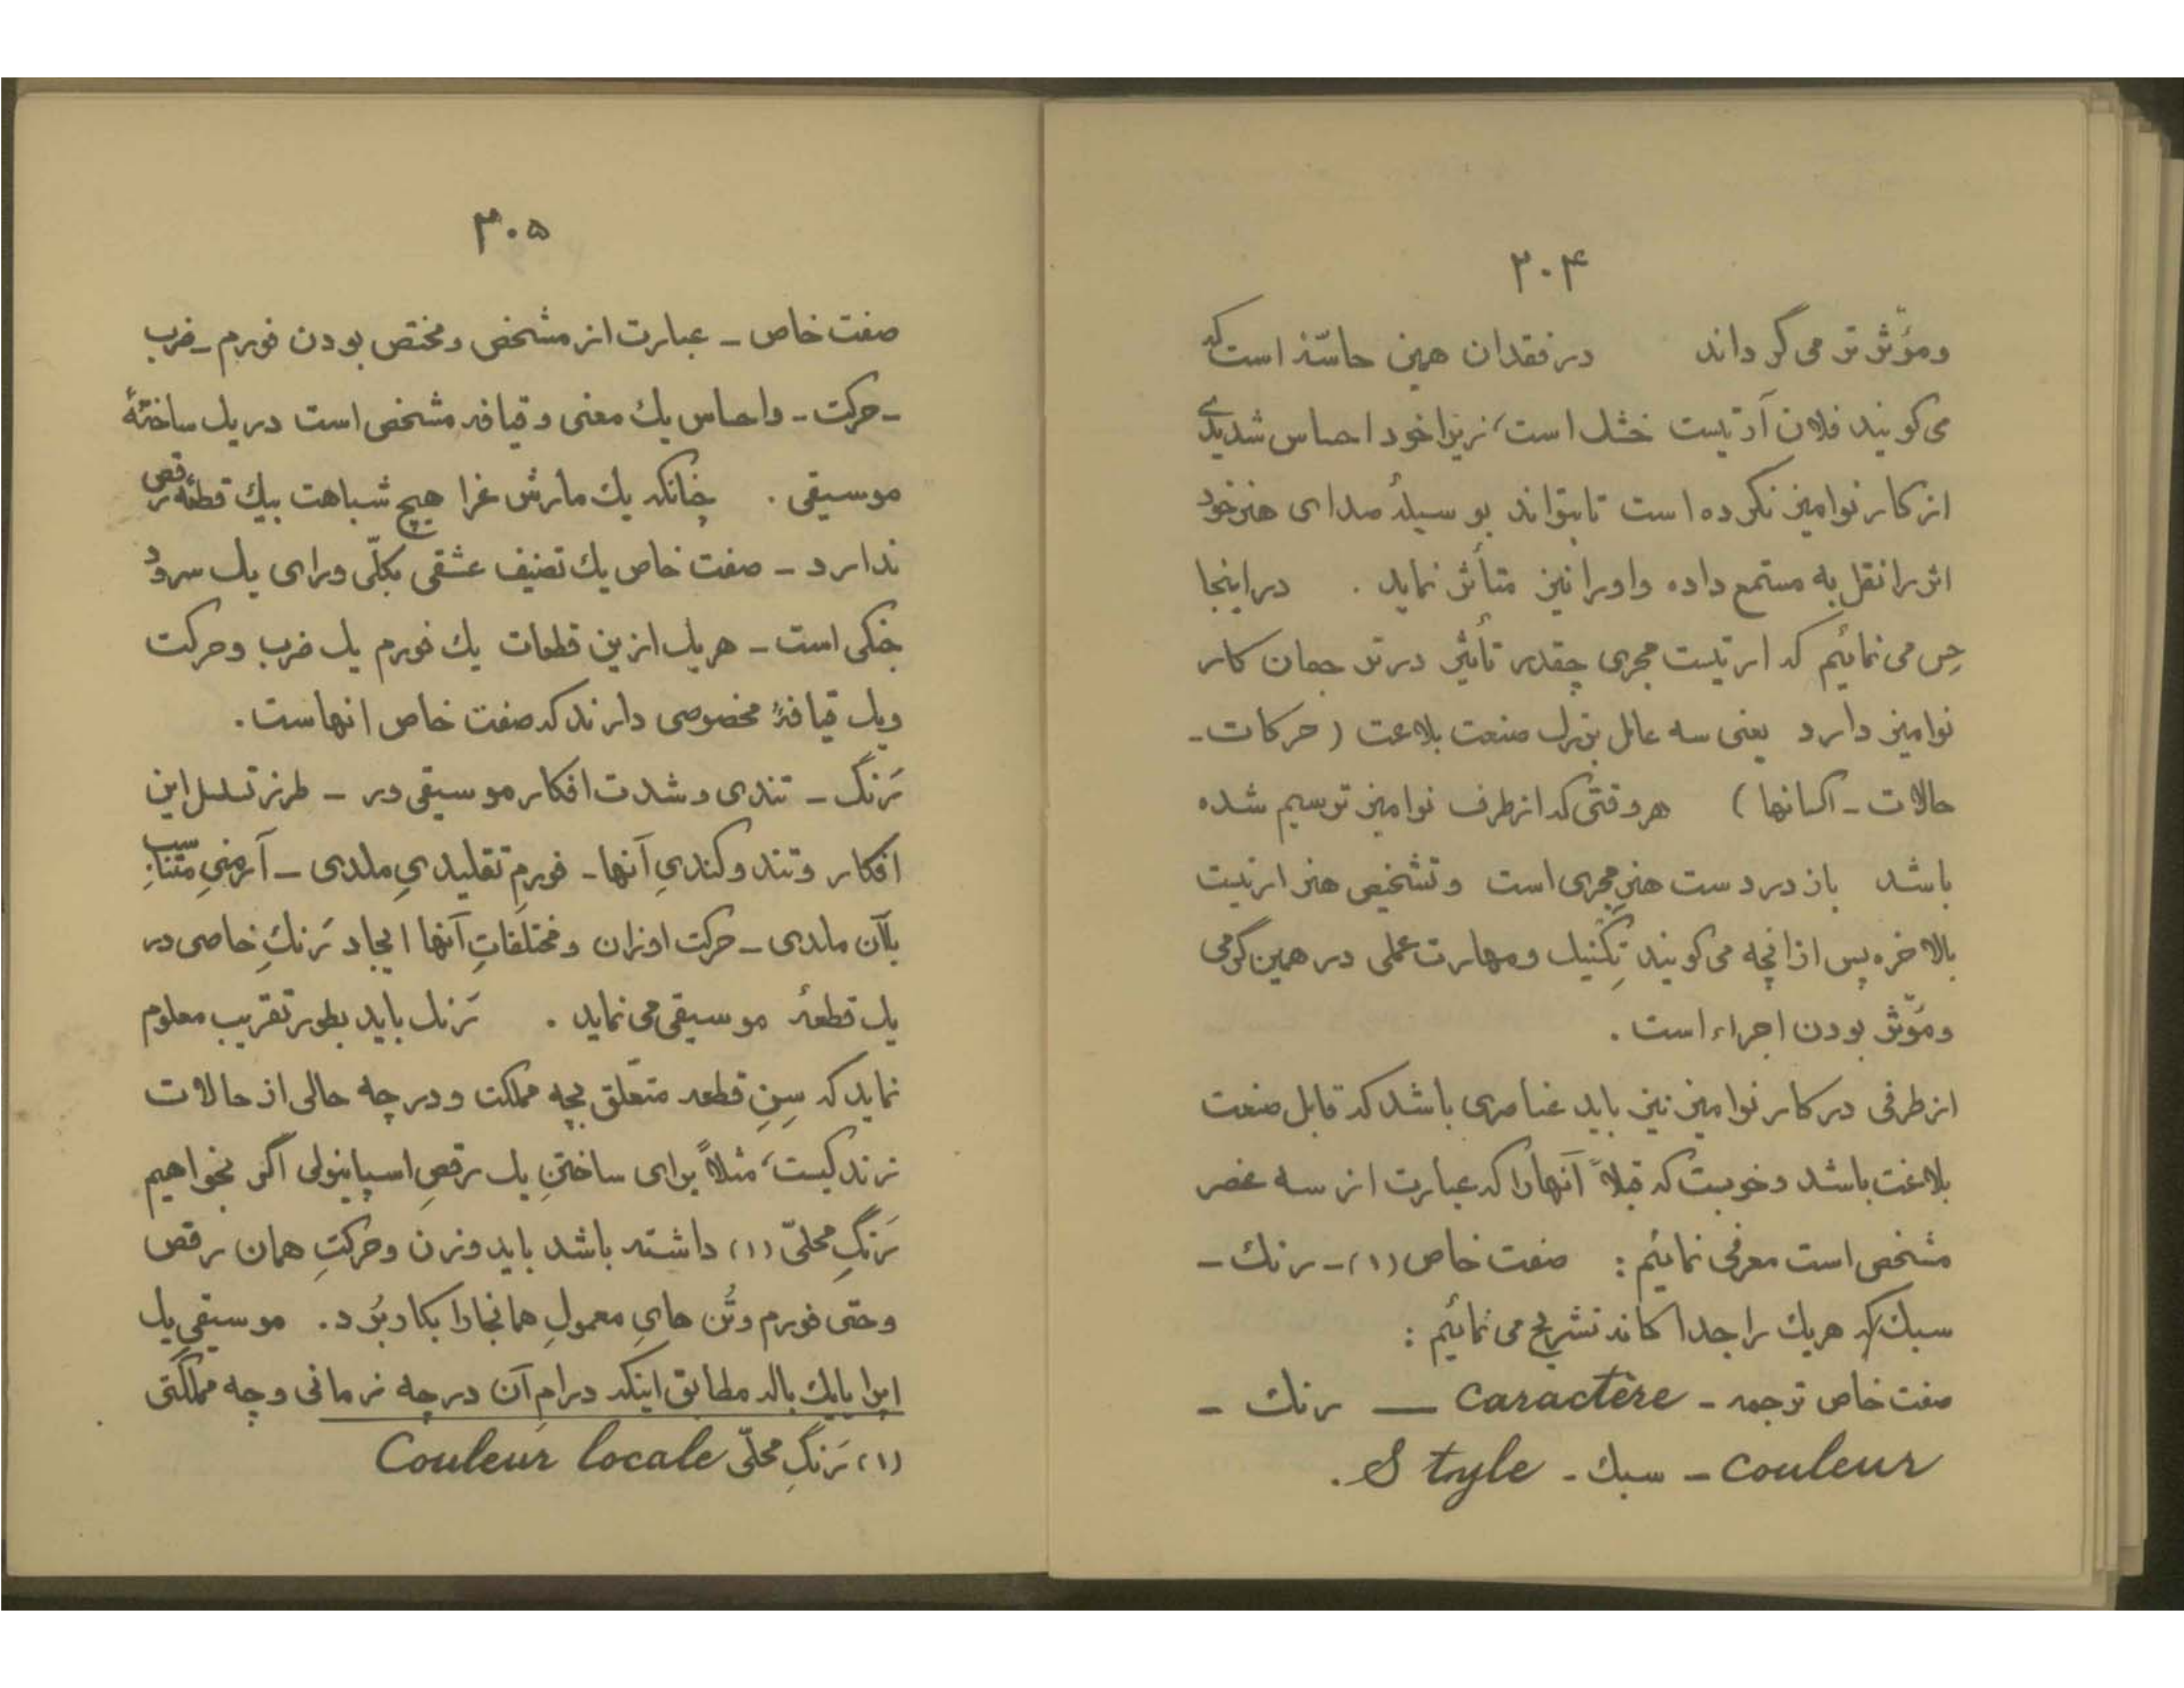 ۲۰۴
ومؤثّر تر می گرداند در فقدان همین حاسّه است که
می گویند فلان آرتیست خشك است، زیرا خود احساس شدیدی
از کار نوامیز نکرده است تا بتواند بوسیلهٔ صدای هنر خود
اثر را نقل به مستمع داده و او را نیز متأثر نماید . در اینجا
حِس می نمائیم که ارتیست مجری چقدر تأثیر در ترجمان کار
نوامیز دارد یعنی سه عامل بزرك صنعت بلاغت ( حرکات -
حالات - اکسانها ) هر وقتی که از طرف نوامیز ترسیم شده
باشد باز در دست هنرِ مجری است و تشخیص هنر ارتیست
بالاخره پس از آنچه می گویند تِکْنیك و مهارت عملی در همین گرمی
ومؤثّر بودن اجراء است .
از طرفی در کار نوامیز نیز باید عناصری باشد که قابل صنعت
بلاغت باشد و خوبست که قبلاً آنها را که عبارت از سه عنصر
مشخص است معرفی نمائیم : صفت خاص (۱) - رنك -
سبك که هریك را جدا گانه تشریح می نمائیم :
صفت خاص ترجمه - Caractère — رنك -
couleur - سبك - Style .
۳۰۵
صفت خاص - عبارت از مشخص و مختص بودن فورم - ضرب
- حرکت - و احساس یك معنی و قیافه مشخص است در یك ساختهٔ
موسیقی . چنانکه یك مارش غرا هیچ شباهت بیك قطعهٔ رقص
ندارد - صفت خاص یك تصنیف عشقی بکلّی ورای یك سرود
جنگی است - هریك ازین قطعات یك فورم یك ضرب و حرکت
ویك قیافهٔ مخصوصی دارند که صفت خاص انهاست .
رَنگ - تندی و شدت افکار موسیقی در - طرز تسلسل این
افکار و تند و کندیِ آنها - فورمِ تقلیدیِ ملدی - آرمنیِ متناسبِ
بآن ملدی - حرکت اوزان و مختلفاتِ آنها ایجاد رَنكِ خاصی در
یك قطعهٔ موسیقی می نماید . رَنك باید بطور تقریب معلوم
نماید که سِنِ قطعه متعلّق بچه مملکت و در چه حالی از حالات
زندگیست، مثلاً برای ساختنِ یك رقصِ اسپاینولی اگر بخواهیم
رَنگِ محلّی (۱) داشته باشد باید وزن و حرکتِ همان رقص
و حتی فورم و تُن هایِ معمولِ همانجا را بکار بُرد . موسیقیِ یك
اپرا یا یك باله مطابق اینکه درامِ آن در چه زمانی و چه مملکتی
(۱) رَنگِ محلّی Couleur locale